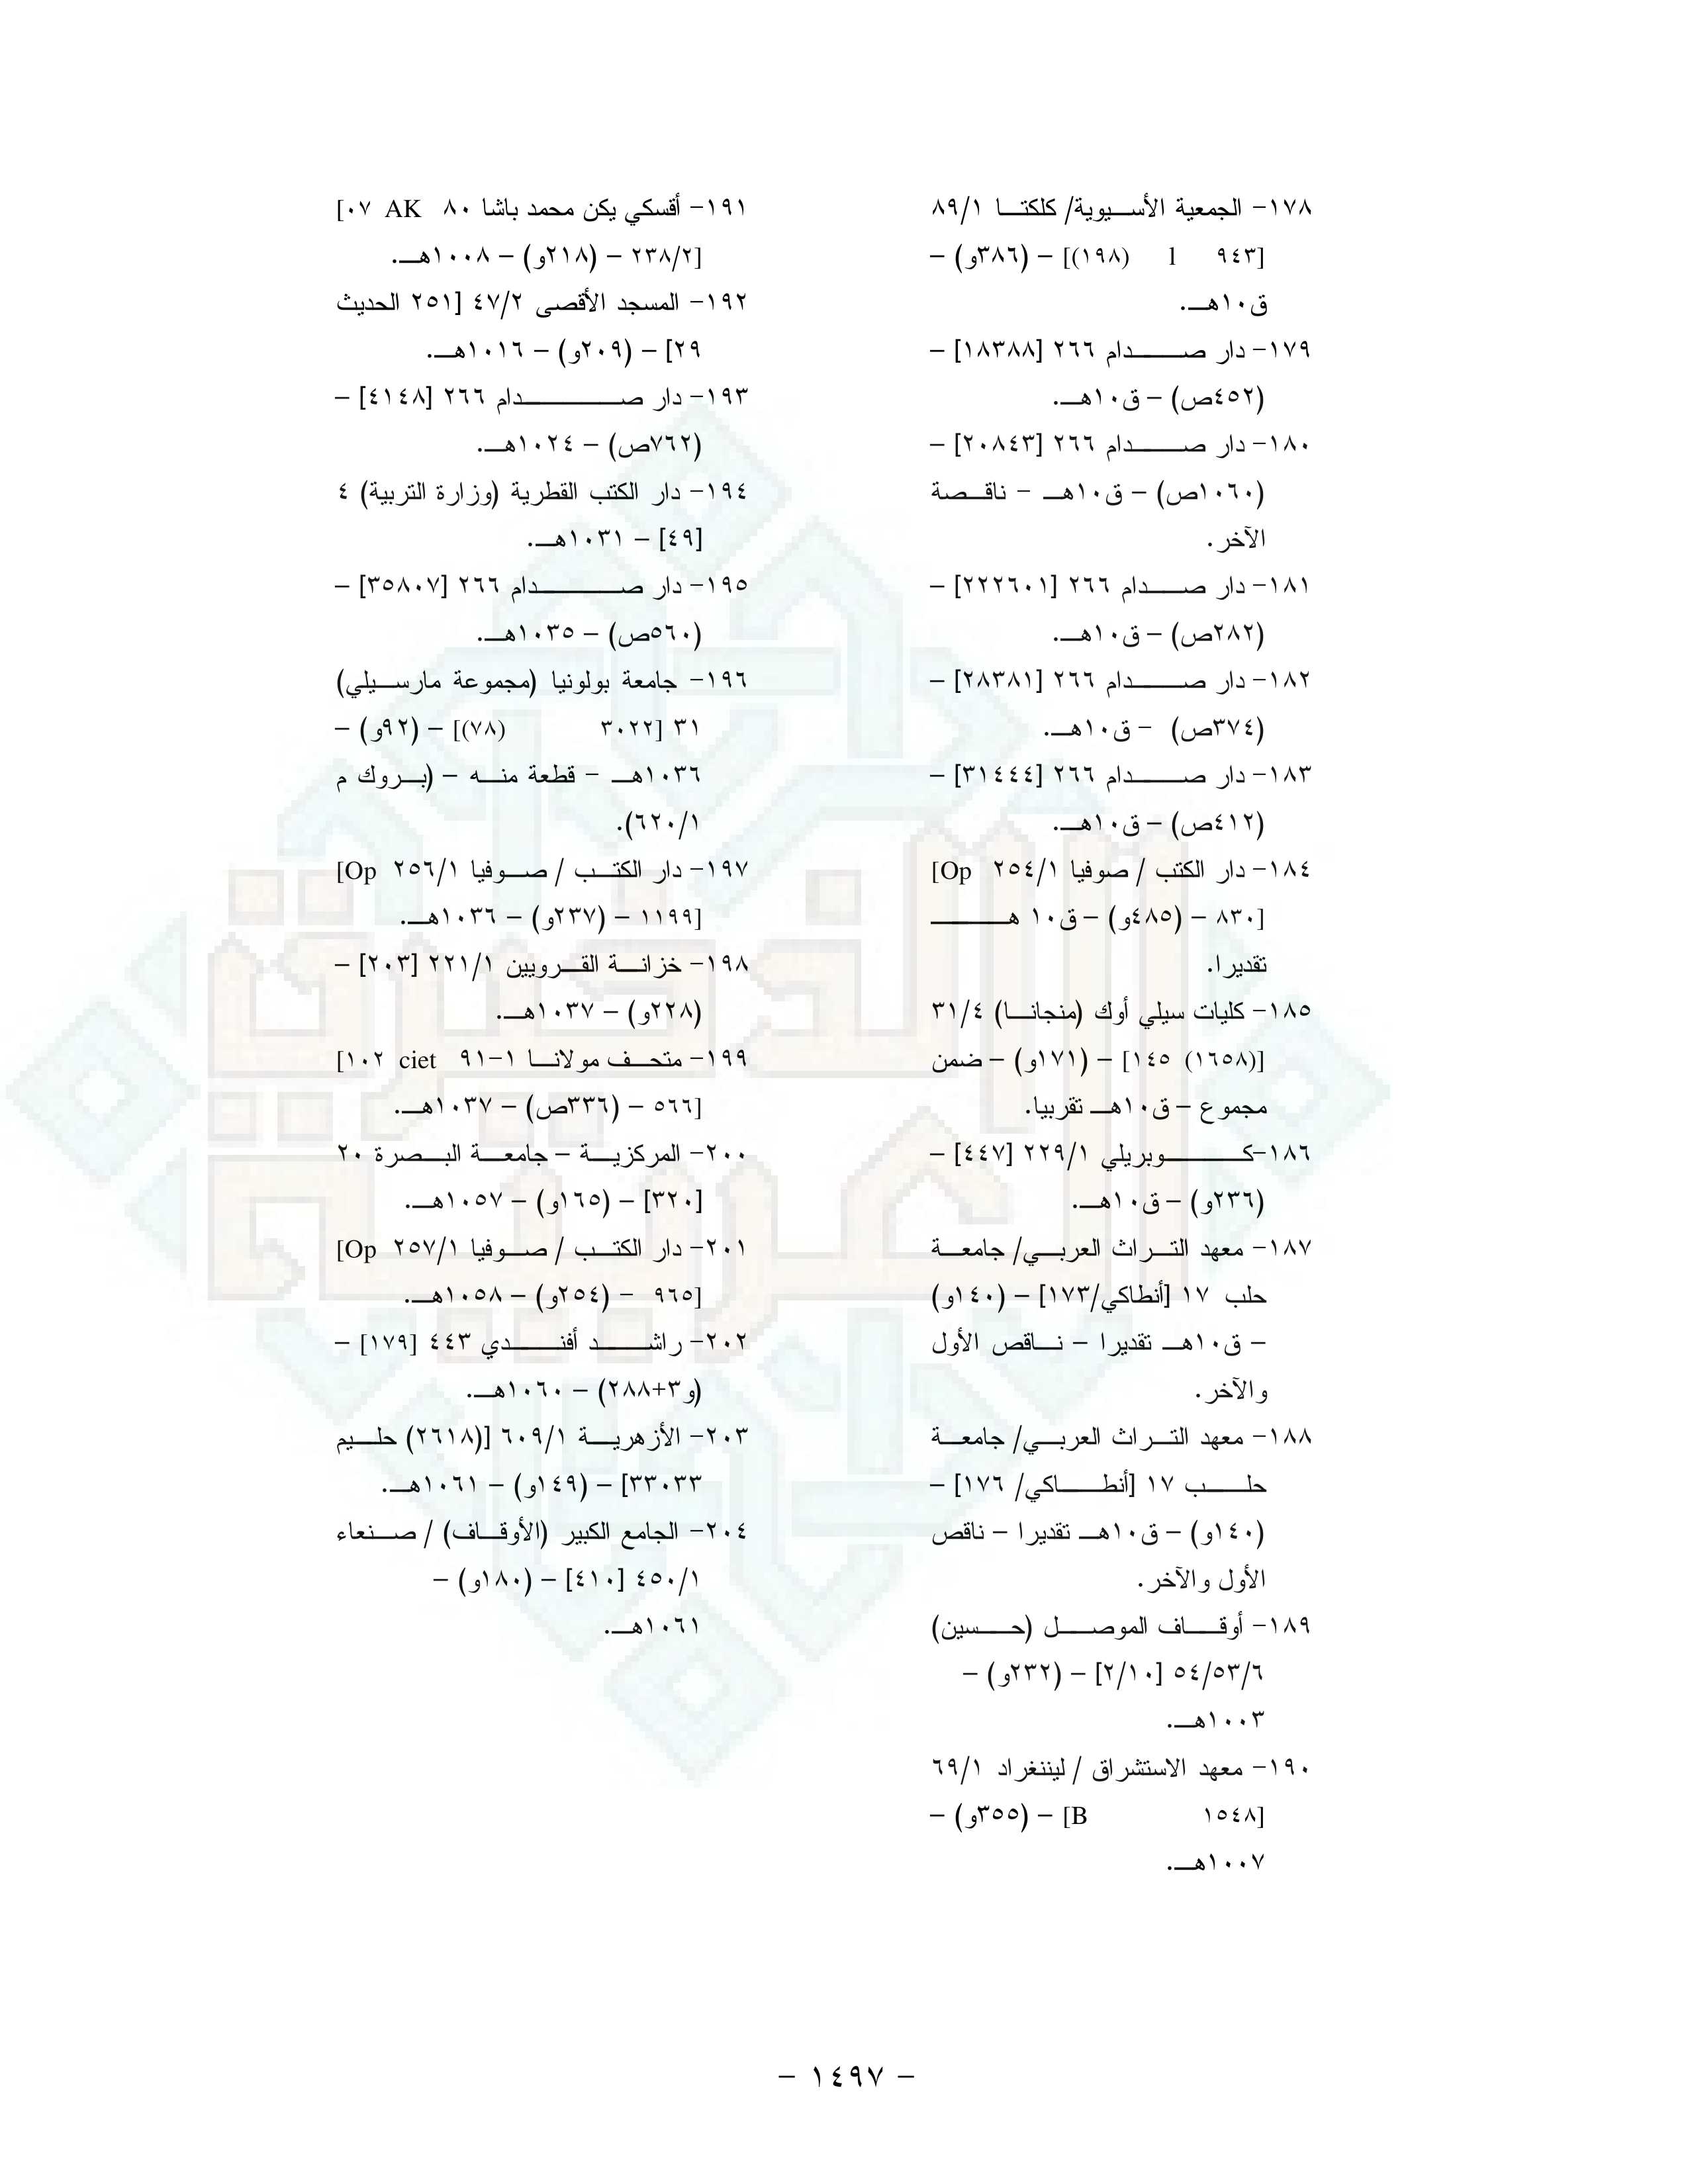 ١٧٨- الجمعية الأسيوية/ كلكتا ٨٩/١
[٩٤٣ l (١٩٨)] – (٣٨٦و) –
ق١٠هـ.
١٧٩- دار صدام ٢٦٦ [١٨٣٨٨] –
(٤٥٢ص) – ق١٠هـ.
١٨٠- دار صدام ٢٦٦ [٢٠٨٤٣] –
(١٠٦٠ص) – ق١٠هـ - ناقصة
الآخر.
١٨١- دار صدام ٢٦٦ [٢٢٢٦٠١] –
(٢٨٢ص) – ق١٠هـ.
١٨٢- دار صدام ٢٦٦ [٢٨٣٨١] –
(٣٧٤ص) - ق١٠هـ.
١٨٣- دار صدام ٢٦٦ [٣١٤٤٤] –
(٤١٢ص) – ق١٠هـ.
١٨٤- دار الكتب / صوفيا ٢٥٤/١ [Op
٨٣٠] – (٤٨٥و) – ق١٠ هـ
تقديرا.
١٨٥- كليات سيلي أوك (منجانا) ٣١/٤
[(١٦٥٨) ١٤٥] – (١٧١و) – ضمن
مجموع – ق١٠هـ تقريبا.
١٨٦-كوبريلي ٢٢٩/١ [٤٤٧] –
(٢٣٦و) – ق١٠هـ.
١٨٧- معهد التراث العربي/ جامعة
حلب ١٧ [أنطاكي/١٧٣] – (١٤٠و)
– ق١٠هـ تقديرا – ناقص الأول
والآخر.
١٨٨- معهد التراث العربي/ جامعة
حلب ١٧ [أنطاكي/ ١٧٦] –
(١٤٠و) – ق١٠هـ تقديرا – ناقص
الأول والآخر.
١٨٩- أوقاف الموصل (حسين)
٥٤/٥٣/٦ [٢/١٠] – (٢٣٢و) –
١٠٠٣هـ.
١٩٠- معهد الاستشراق / ليننغراد ٦٩/١
[١٥٤٨ B] – (٣٥٥و) –
١٠٠٧هـ.
١٩١- أقسكي يكن محمد باشا ٨٠ [٠٧ AK
٢٣٨/٢] – (٢١٨و) – ١٠٠٨هـ.
١٩٢- المسجد الأقصى ٤٧/٢ [٢٥١ الحديث
٢٩] – (٢٠٩و) – ١٠١٦هـ.
١٩٣- دار صدام ٢٦٦ [٤١٤٨] –
(٧٦٢ص) – ١٠٢٤هـ.
١٩٤- دار الكتب القطرية (وزارة التربية) ٤
[٤٩] – ١٠٣١هـ.
١٩٥- دار صدام ٢٦٦ [٣٥٨٠٧] –
(٥٦٠ص) – ١٠٣٥هـ.
١٩٦- جامعة بولونيا (مجموعة مارسيلي)
٣١ [٣٠٢٢ (٧٨)] – (٩٢و) –
١٠٣٦هـ - قطعة منه – (بروك م
٦٢٠/١).
١٩٧- دار الكتب / صوفيا ٢٥٦/١ [Op
١١٩٩] – (٢٣٧و) – ١٠٣٦هـ.
١٩٨- خزانة القرويين ٢٢١/١ [٢٠٣] –
(٢٢٨و) – ١٠٣٧هـ.
١٩٩- متحف مولانا ١-٩١ [١٠٢ ciet
٥٦٦] – (٣٣٦ص) – ١٠٣٧هـ.
٢٠٠- المركزية – جامعة البصرة ٢٠
[٣٢٠] – (١٦٥و) – ١٠٥٧هـ.
٢٠١- دار الكتب / صوفيا ٢٥٧/١ [Op
٩٦٥] - (٢٥٤و) – ١٠٥٨هـ.
٢٠٢- راشد أفندي ٤٤٣ [١٧٩] –
(و٣+٢٨٨) – ١٠٦٠هـ.
٢٠٣- الأزهرية ٦٠٩/١ [(٢٦١٨) حليم
٣٣٠٣٣] – (١٤٩و) – ١٠٦١هـ.
٢٠٤- الجامع الكبير (الأوقاف) / صنعاء
٤٥٠/١ [٤١٠] – (١٨٠و) –
١٠٦١هـ.
– ١٤٩٧ –